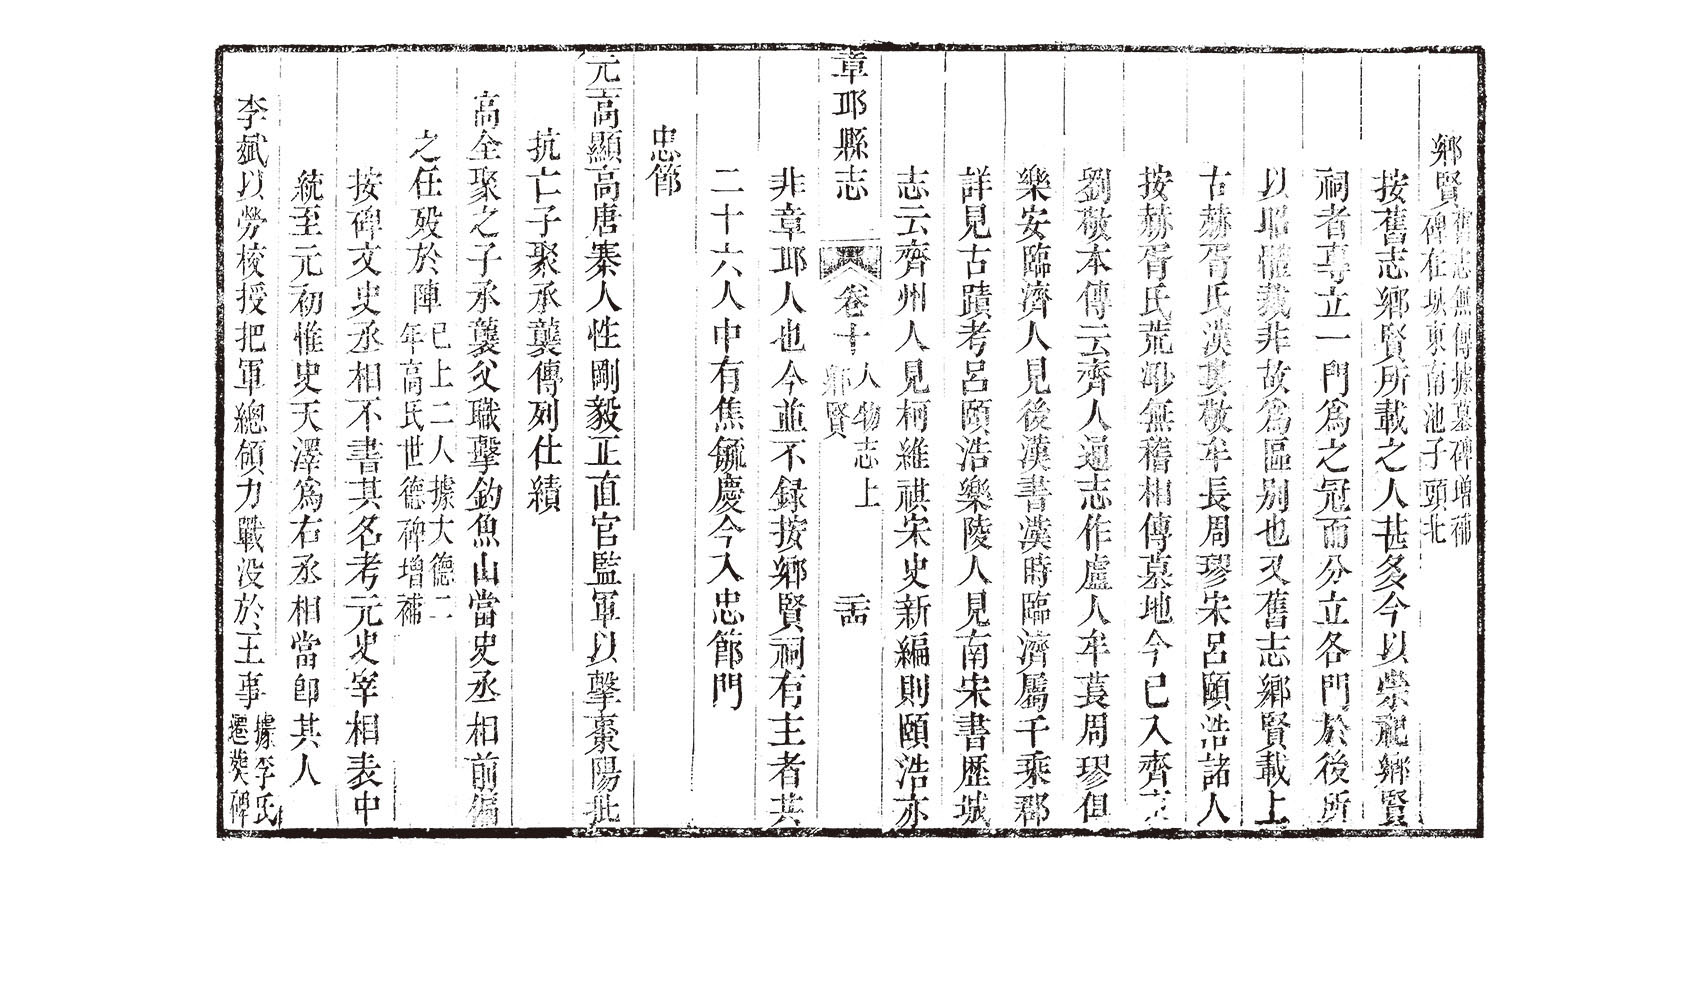 鄉賢舊志無傳據墓碑增補
碑在城東南池子頭北
按舊志鄉賢所載之人甚多今以崇祀鄉賢
祠者專立一門爲之冠而分立各門於後所
以昭體裁非故爲區别也又舊志鄉賢載上
古赫胥氏漢婁敬牟長周璆宋呂頤浩諸人
按赫胥氏荒渺無稽相傳墓地今已入齊
劉敬本傳云齊人通志作盧人牟萇周璆俱
樂安臨濟人見後漢書漢時臨濟屬千乘郡
詳見古蹟考呂頤浩樂陵人見南宋書歷城
志云齊州人見柯維祺宋史新編則頤浩亦
非章邱人也今並不録按鄉賢祠有主者共
二十六人中有焦毓慶今入忠節門
章邱縣志
卷十 人物志上
鄉賢
三百
忠節
元高顯高唐寨人性剛毅正直官監軍以擊棗陽北
抗亡子聚承襲傳列仕績
高全聚之子承襲父職擊釣魚山當史丞相前偏
之任殁於陣已上二人據大德二
年高氏世德碑增補
按碑文史丞相不書其名考元史宰相表中
統至元初惟史天澤爲右丞相當卽其人
李斌以勞校授把軍總領力戰没於王事據李氏
遷葬碑